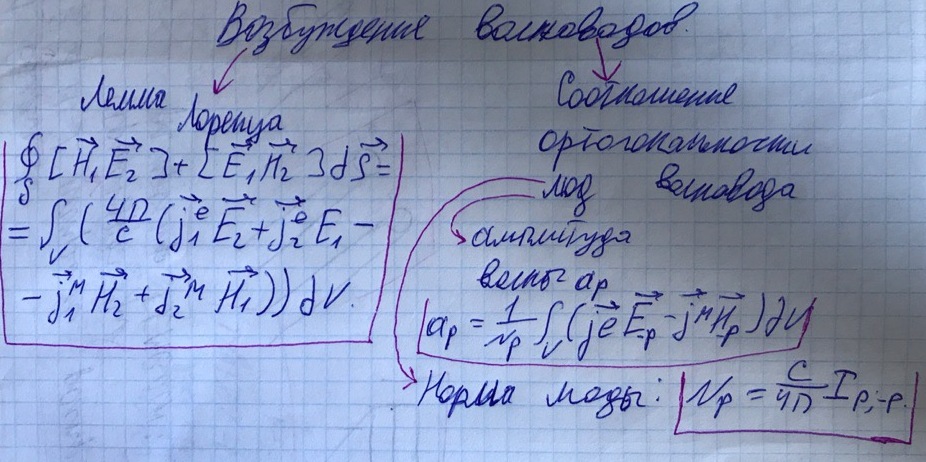 Возбуждение волноводов.
Лемма
Лоренца
∮_S [H⃗₁E⃗₂] + [E⃗₁H⃗₂] dS⃗ =
= ∫_V (4П/c (j⃗₁ᵉ E⃗₂ + j⃗₂ᵉ E₁ −
− j⃗₁ᴹ H⃗₂ + j⃗₂ᴹ H⃗₁)) dV.
Соотношение
ортогональности
мод волновода
амплитуда
волны aₚ
aₚ = 1/Nₚ ∫_V (j⃗ᵉ E⃗₋ₚ − j⃗ᴹ H⃗₋ₚ) dV
Норма моды: Nₚ = c/4П I_{p;-p}.